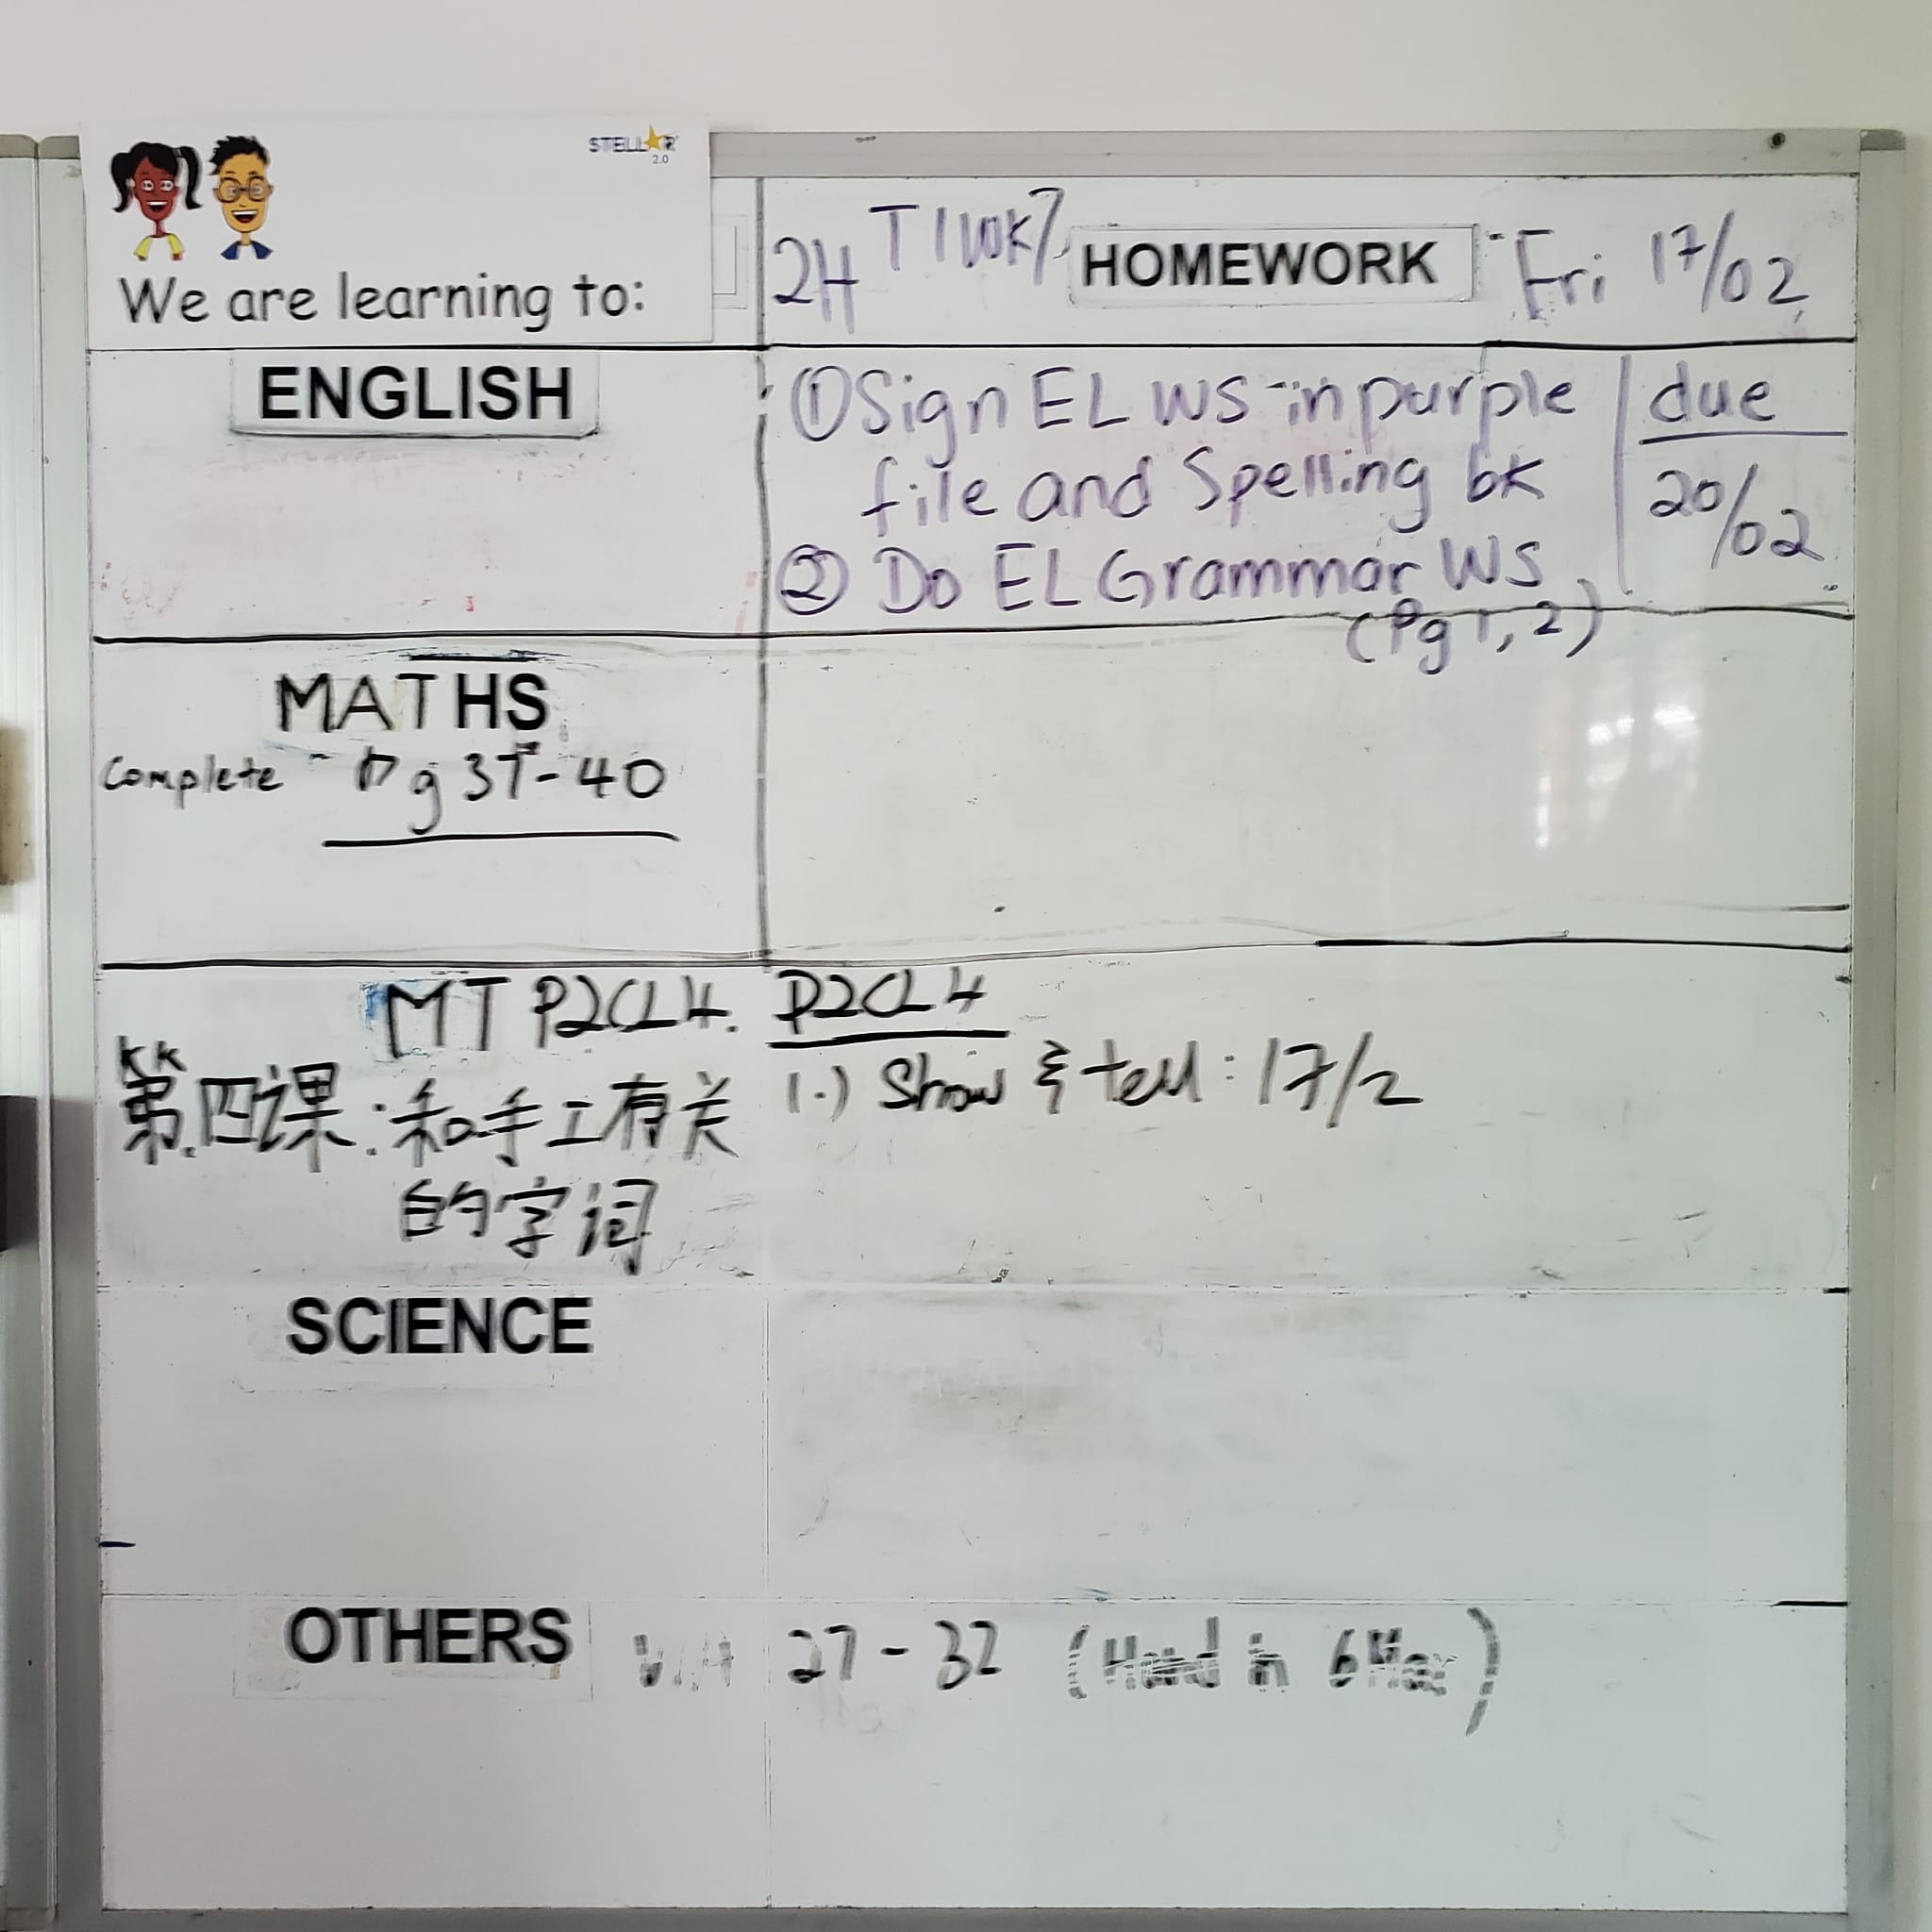 STELLAR
2.0
We are learning to:
2H T1 WK7 HOMEWORK Fri 17/02
ENGLISH
① Sign EL WS in purple
file and Spelling bk
② Do EL Grammar WS
(Pg 1, 2)
due
20/02
MATHS
Complete Pg 37-40
MT P2CL4.
第四课:和手工有关
的字词
P2CL4
1.) Show & tell: 17/2
SCIENCE
OTHERS
27-32 (Hand in 6 Mar)